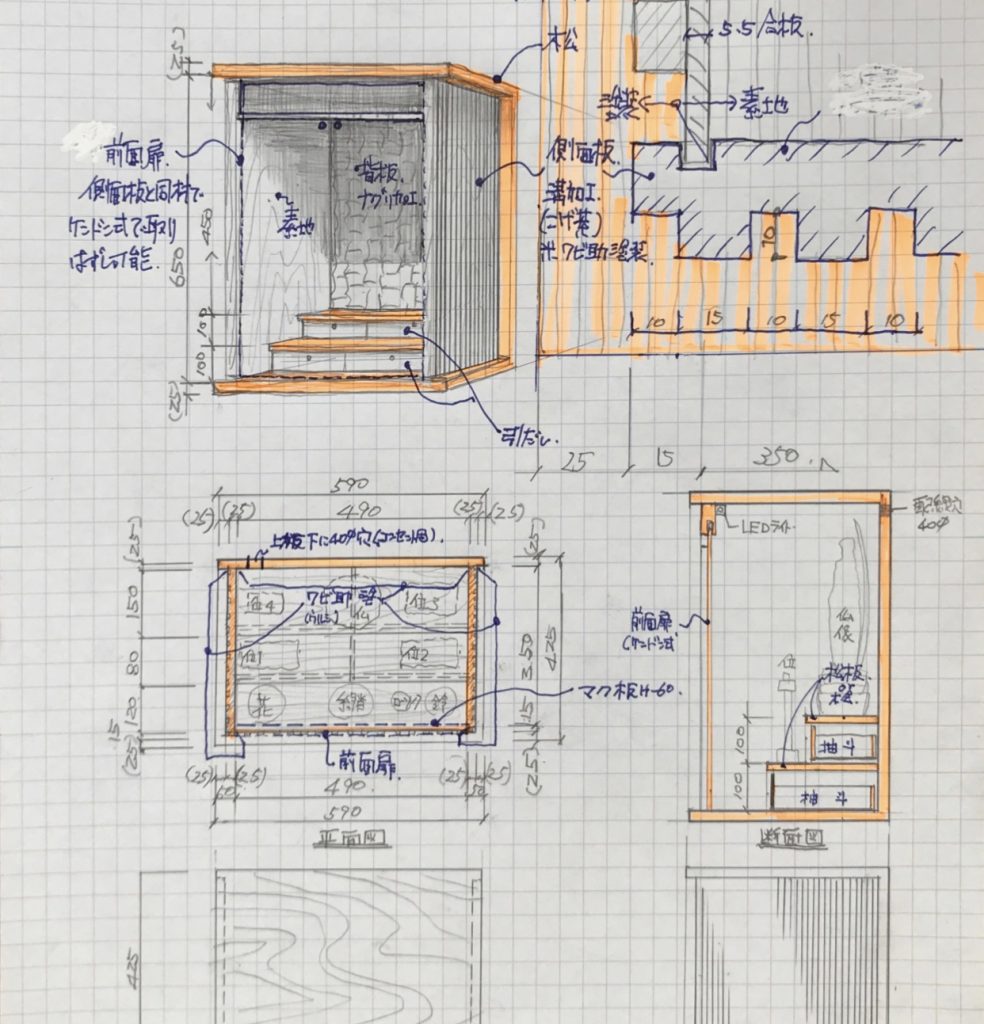 (25)
松
5.5合板.
塗装
素地
前面扉.
側面板と同材で
ケンドン式で取り
はずし可能.
素地
背板.
ナグリ加工.
側面板.
溝加工.
(こげ茶)
ワビ助塗装.
650
450
100
100
(25)
引だし.
10
10
15
10
15
10
25
15
350
590
(25)
(25)
490
(25)
(25)
上板下に40φ穴(コンセント用).
(25)
150
80
120
15
(25)
位4
ワビ助塗
仏
位3
位1
位2
花
鈴
マク板H-60.
前面扉.
(25)
350
425
15
(25)
(25)
(25)
50
490
(25)
(25)
50
590
平面図
LED
40φ
前面扉
(ケンドン式
仏像
位
松板
100
100
抽斗
抽斗
断面図
425